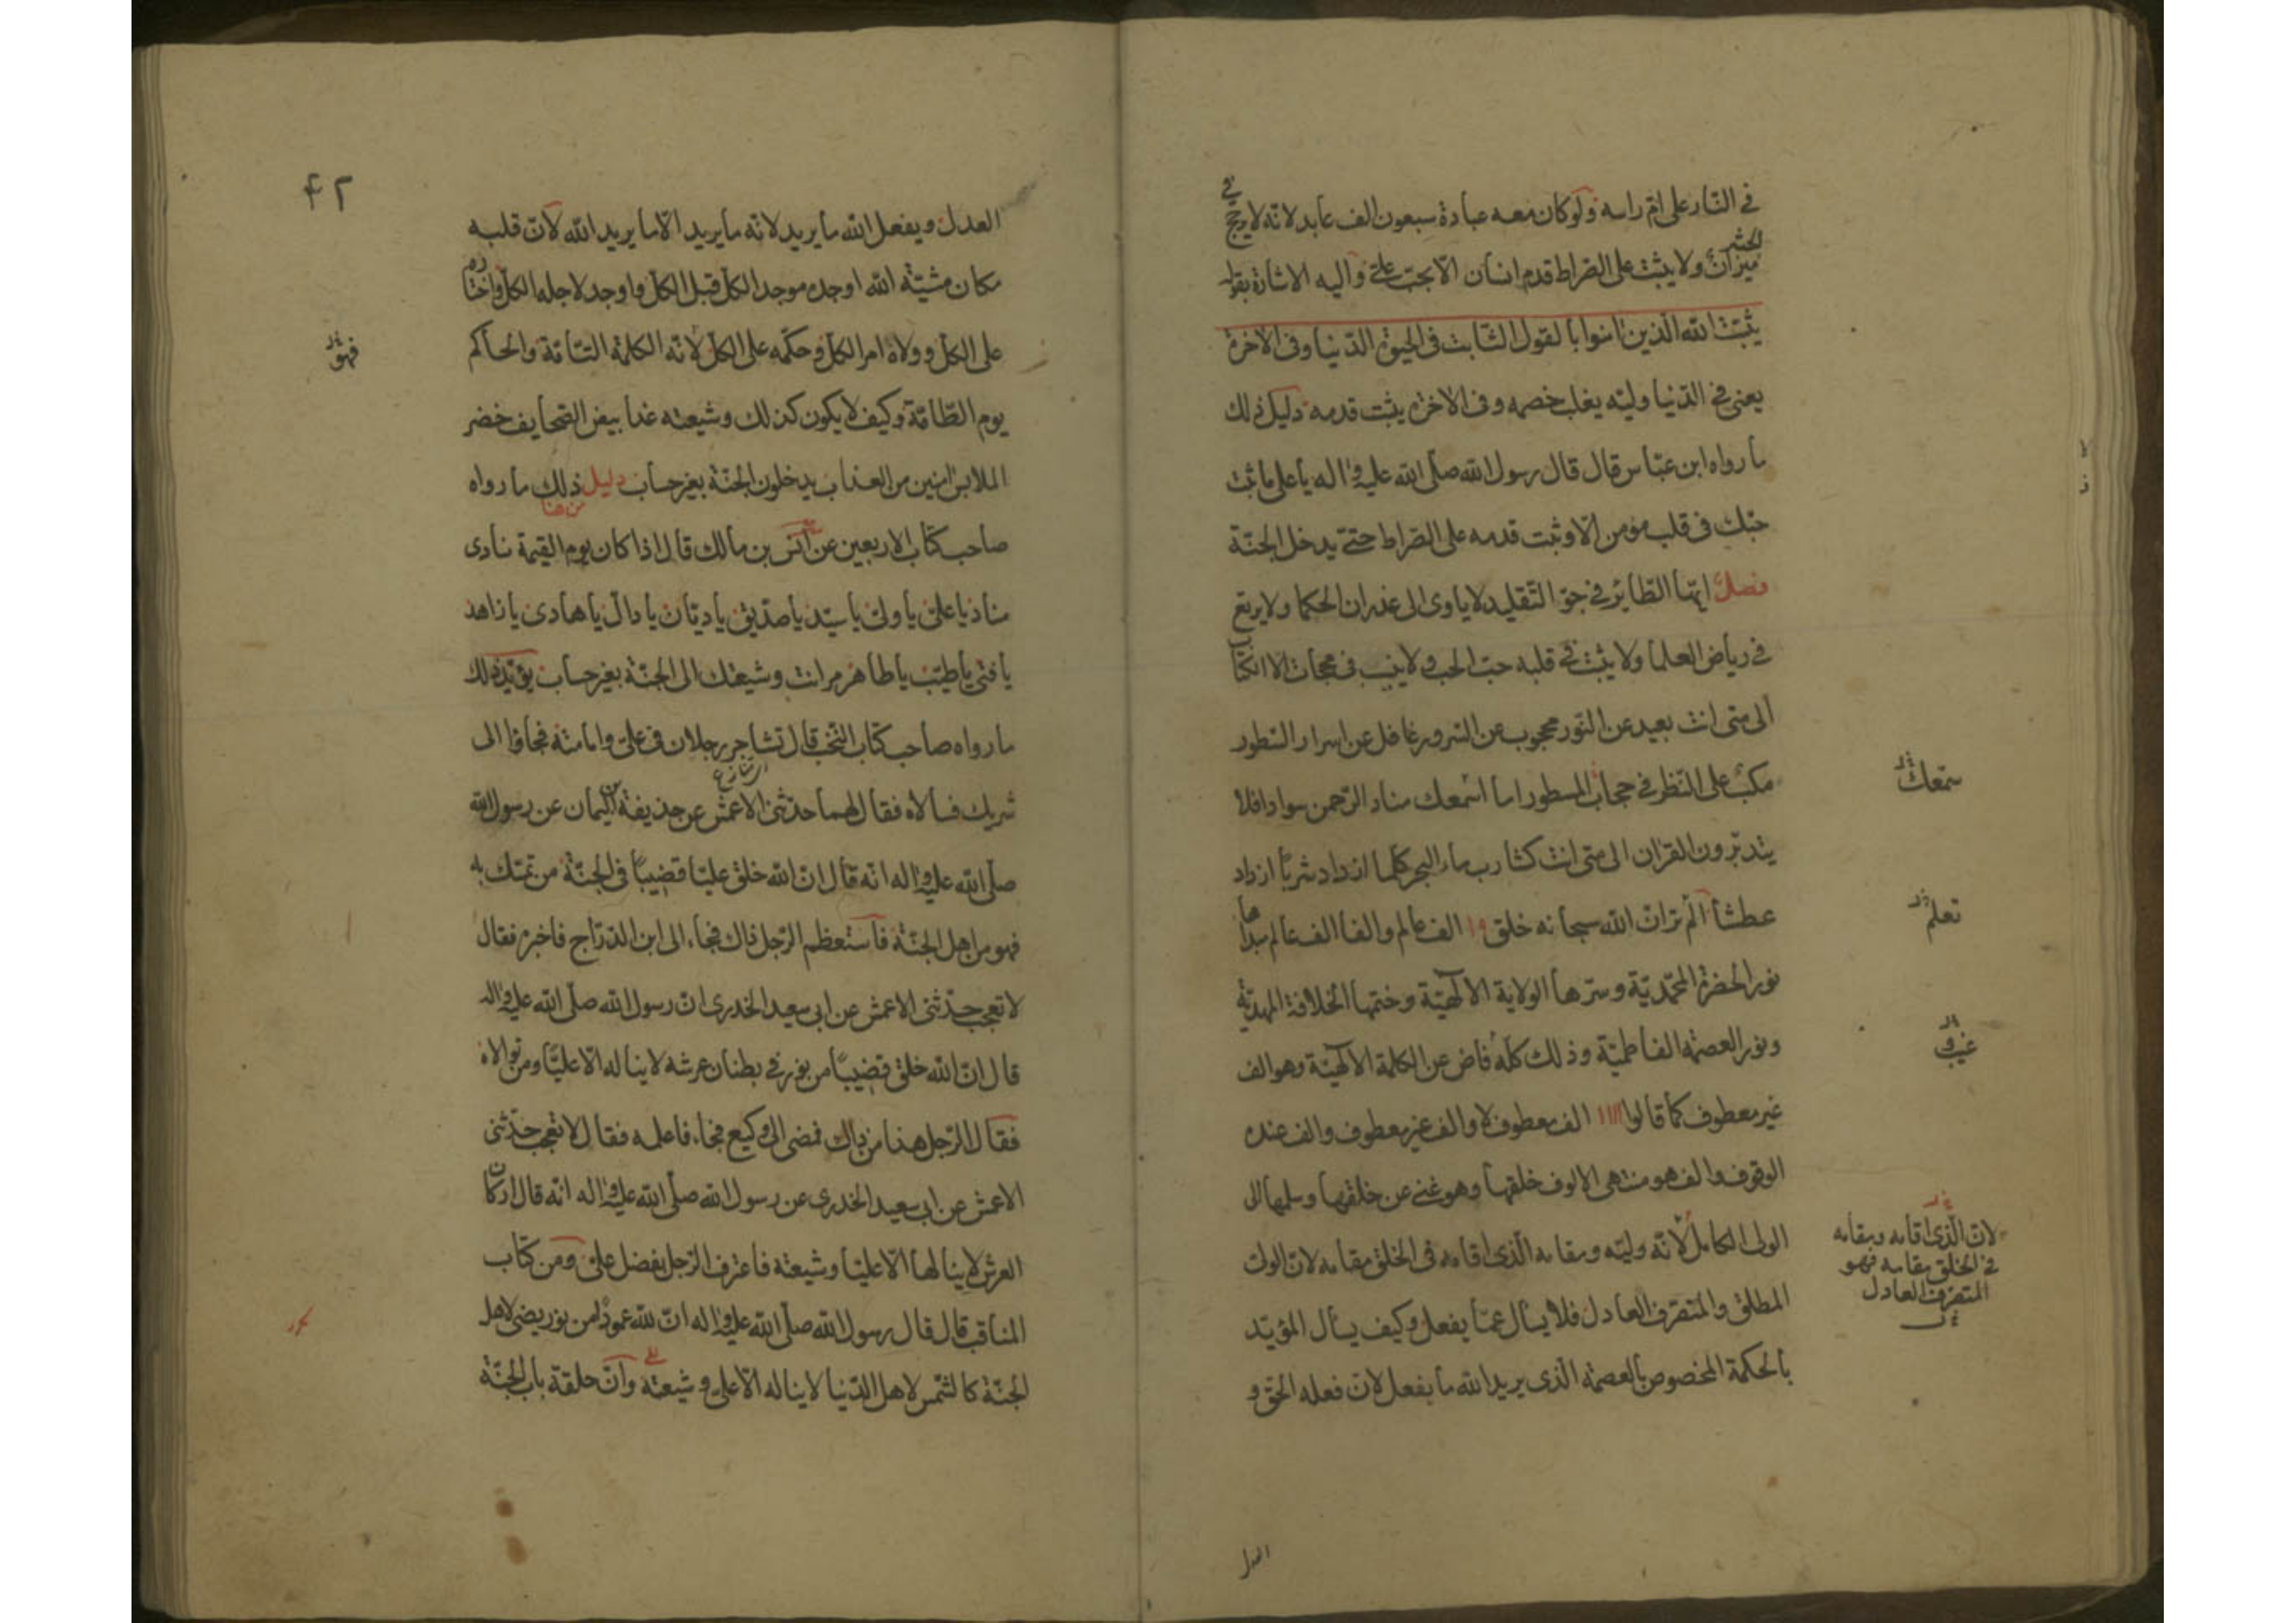 في النار على ام راسه ولو كان معه عبادة سبعون الف عابد لانه لا يرجح في
الحشر
ميزان ولا يثبت على الصراط قدم انسان الا بحب علي واليه الاشارة بقوله
يثبت الله الذين امنوا بالقول الثابت في الحيوة الدنيا وفي الاخرة
يعني في الدنيا وليه يغلب خصمه وفي الاخرة يثبت قدمه دليل ذلك
ما رواه ابن عباس قال قال رسول الله صلى الله عليه واله يا على ما ثبت
حبك في قلب مؤمن الا وثبت قدمه على الصراط حتى يدخل الجنة
فصل ايها الطاير في جو التقليد لا ياوى الى غدران الحكما ولا يرتع
في رياض العلما ولا يثبت في قلبه حب الحب ولا ينب في حجات الا الكتاب
الى متى انت بعيد عن النور محجوب عن السرور غافل عن اسرار السطور
مكب على النظر في حجاب المسطور اما اسمعك مناد الرحمن سوادا فلا
سمعك
يتدبرون القران الى متى انت كشارب ماء البحر كلما ازداد شربا ازداد
عطشا الم تر ان الله سبحانه خلق ١٥ الف عالم والفا الف عالم مبداها
تعلم
نور الحضرة المحمدية وسرها الولاية الالهية وختمها الخلافة المهدية
ونور العصمة الفاطمية وذلك كله فاض عن الكلمة الالهية وهو الف
غيب
غير معطوف كما قالوا ااا الف معطوف لا والف غير معطوف والف عنده
الوقوف والف هو منتهى الالوف خلقها وهو غني عن خلقها وسلمها الى
الولى الكامل لانه وليه ومقامه الذى اقامه في الخلق مقامه لان الولى
لان الذى اقامه ومقامه
في الخلق مقامه فهو
المتصرف العادل
المطلق والمتصرف العادل فلا يسال عما يفعل وكيف يسال المؤيد
بالحكمة المخصوص بالعصمة الذى يريد الله ما يفعل لان فعله الحق و
العدل
٤٢
العدل ويفعل الله ما يريد لانه ما يريد الا ما يريد الله لان قلبه
مكان مشية الله اوجده موجد الكل قبل الكل واوجد لاجله الكل واختاره
على الكل وولاه امر الكل وحكمه على الكل لانه الكلمة التامة والحاكم
فهو
يوم الطامة وكيف لا يكون كذلك وشيعته غدا بيض الصحايف خضر
الملابس امنين من العذاب يدخلون الجنة بغير حساب دليل ذلك ما رواه
من هنا
صاحب كتاب الاربعين عن انس بن مالك قال اذا كان يوم القيمة نادى
مناد يا على يا ولى يا سيد يا صديق يا ديان يا دال يا هادى يا زاهد
يا فتى يا طيب يا طاهر مر انت وشيعتك الى الجنة بغير حساب يؤيد ذلك
ما رواه صاحب كتاب النخب قال تشاجر رجلان في على وامامته فجاؤا الى
شريك فسالاه فقال لهما حدثنى الاعمش عن حذيفة بن اليمان عن رسول الله
صلى الله عليه واله انه قال ان الله خلق عليا قضيبا في الجنة من تمسك به
فهو من اهل الجنة فاستعظم الرجل ذاك فجاء الى ابن الدراج فاخبره فقال
لا تعجب حدثنى الاعمش عن ابى سعيد الخدرى ان رسول الله صلى الله عليه واله
قال ان الله خلق قضيبا من نور في بطنان عرشه لا يناله الا عليا ومن توالاه
فقال الرجل هذا من ذاك فمضى الى وكيع فجاء فاعلمه فقال لا تعجب حدثنى
الاعمش عن ابى سعيد الخدرى عن رسول الله صلى الله عليه واله انه قال اركان
العرش لا ينالها الا عليا وشيعته فاعترف الرجل بفضل على ومن كتاب
المناقب قال قال رسول الله صلى الله عليه واله ان لله عمودا من نور يضئ لاهل
الجنة كالشمس لاهل الدنيا لا يناله الا على وشيعته وان حلقة باب الجنة